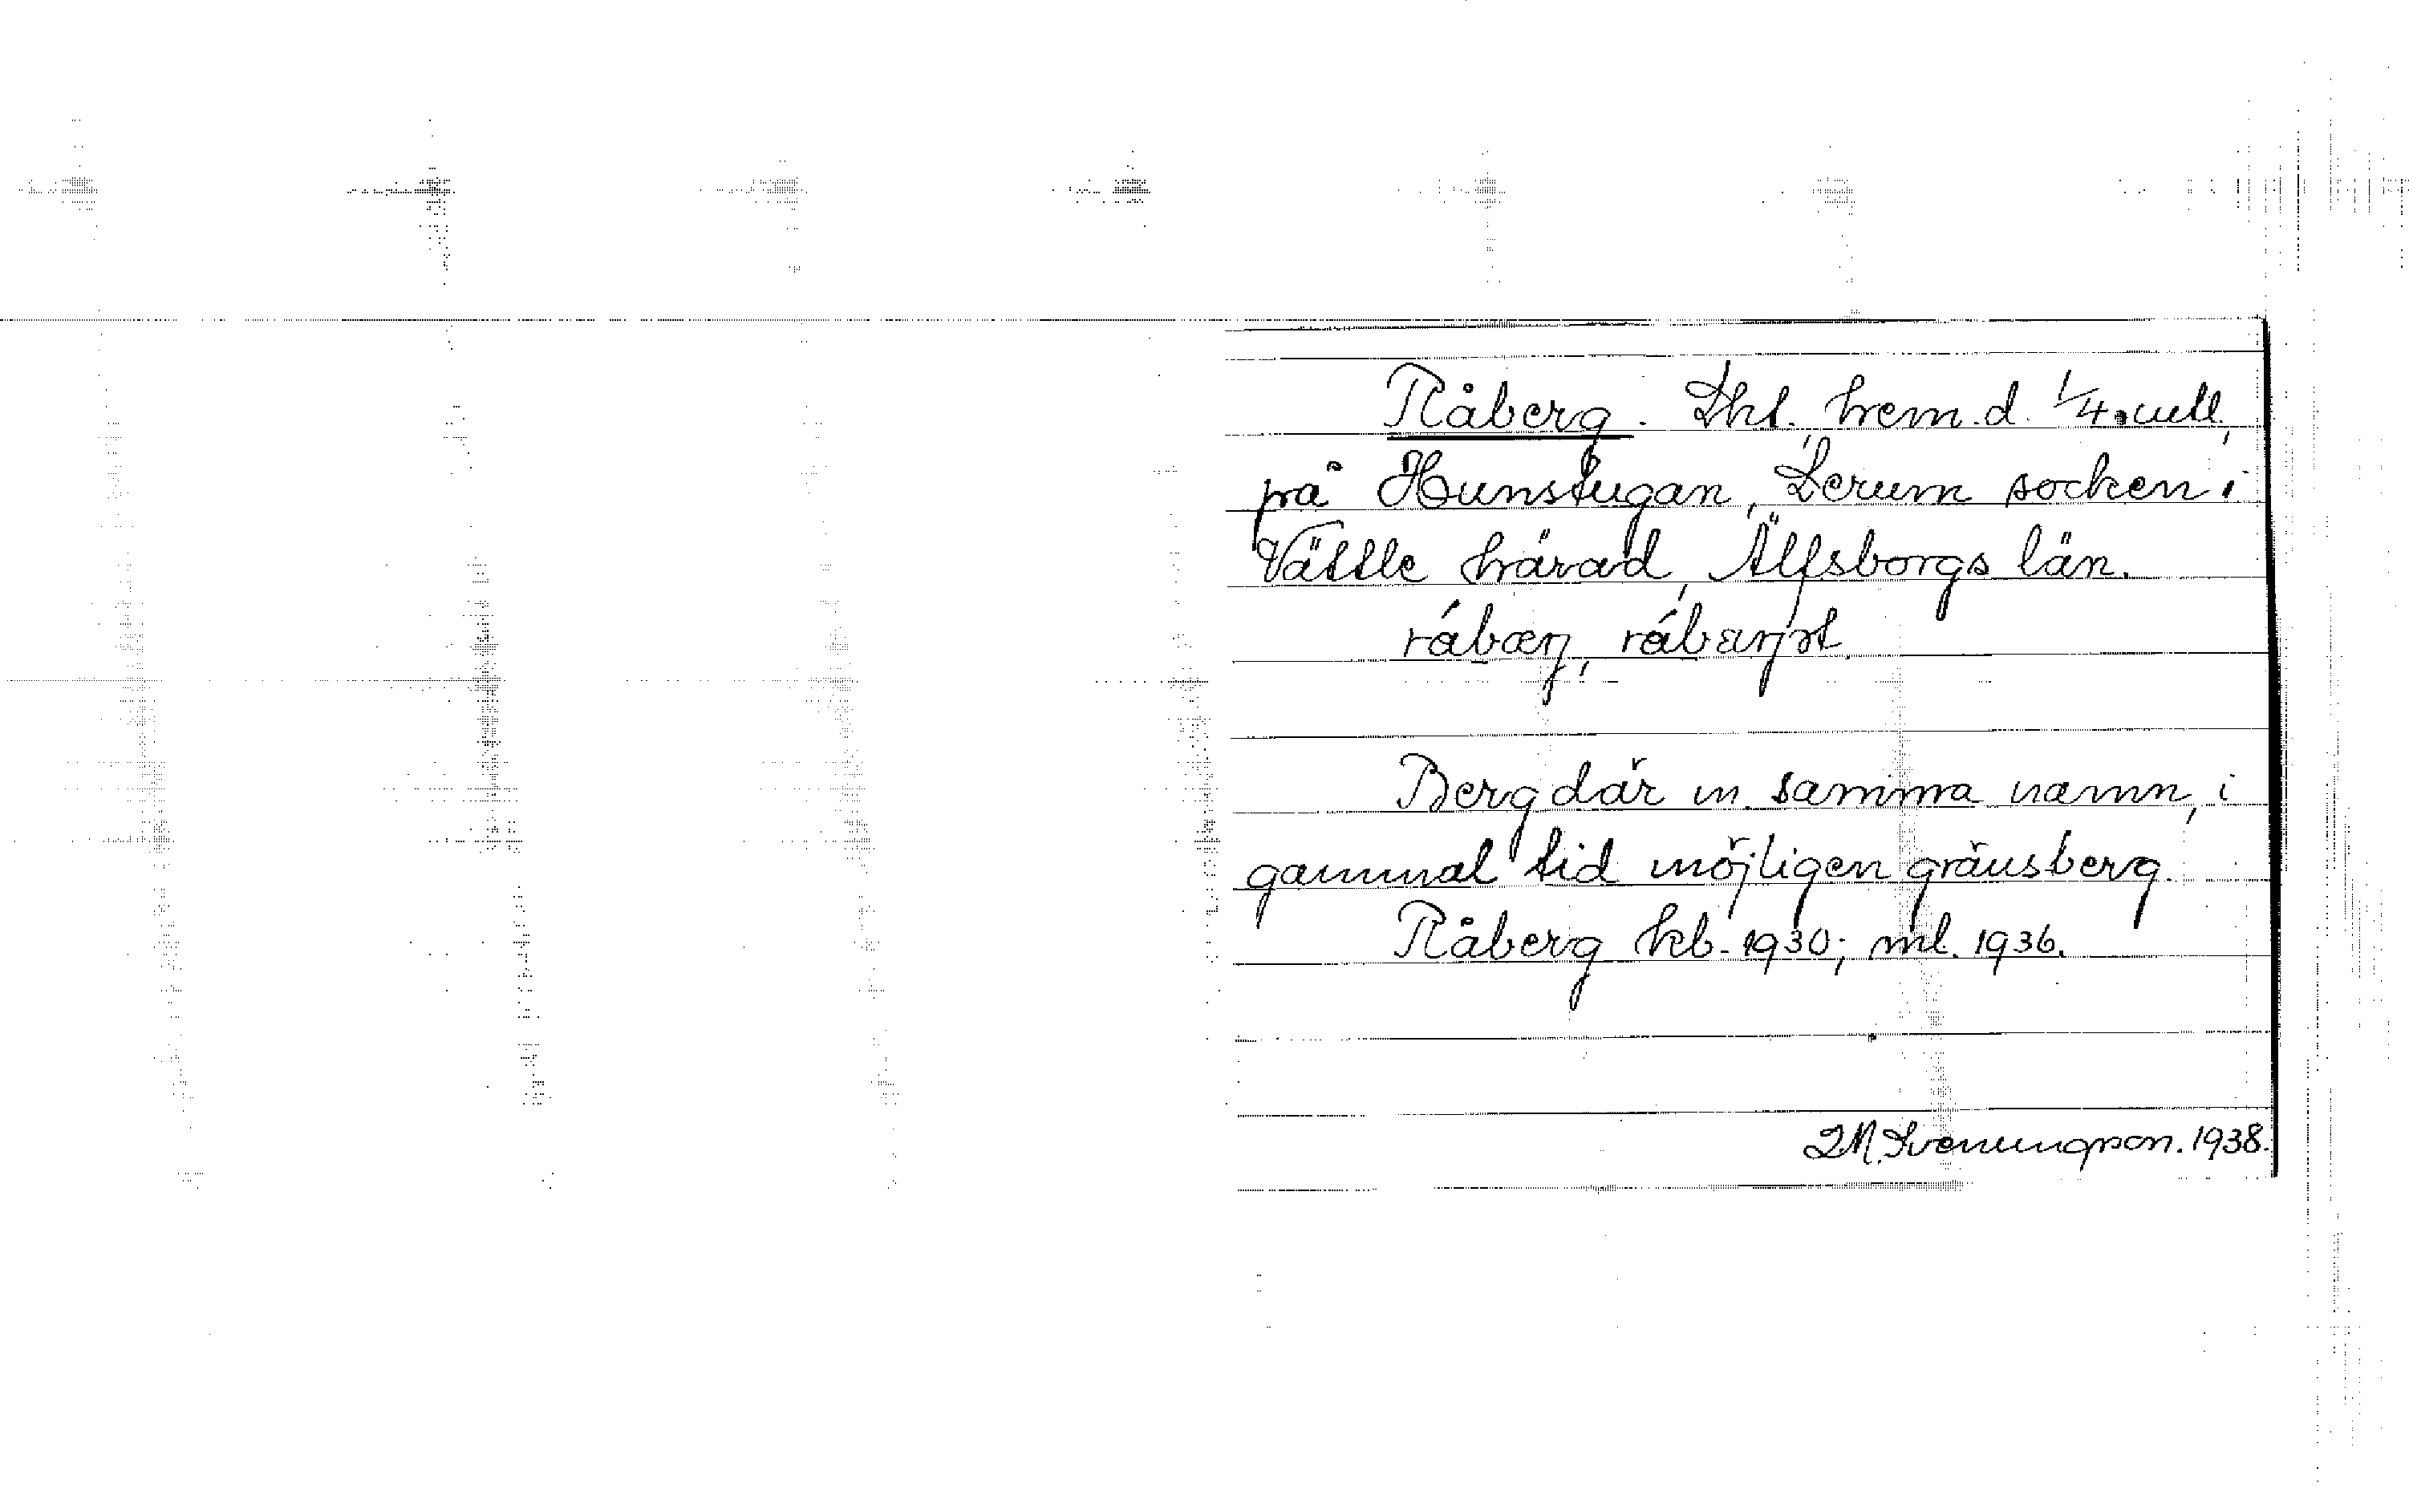 Råberg. Lht., hem.d. 1/4 mtl,
på Hunstugan, Lerum socken i
Vättle härad, Älfsborgs län.
rábærj, rábærjət.
Berg där m. samma namn, i
gammal tid möjligen gränsberg.
Råberg kb. 1930; ml. 1936.
Svenungsson. 1938.